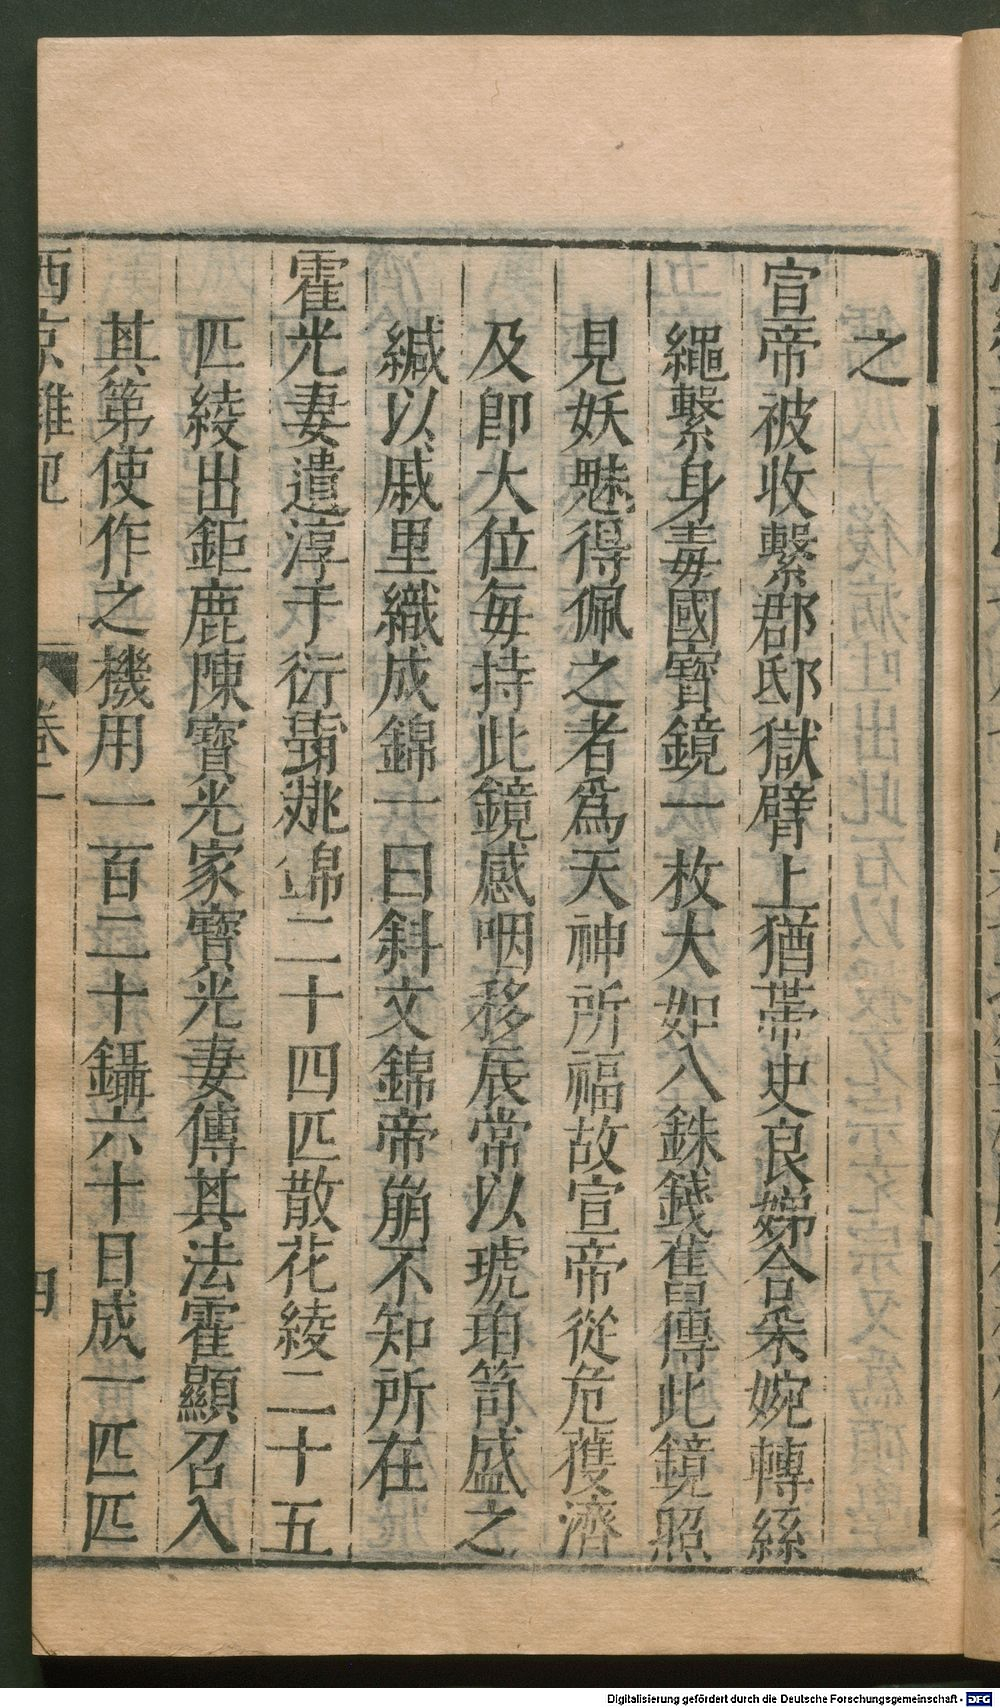 之
宣帝被收繫郡邸獄臂上猶帶史良娣合采婉轉絲
繩繫身毒國寶鏡一枚大如八銖錢舊傳此鏡照
見妖魅得佩之者爲天神所福故宣帝從危獲濟
及即大位每持此鏡感咽移辰常以琥珀笥盛之
緘以戚里織成錦一曰斜文錦帝崩不知所在
霍光妻遺淳于衍蒲桃錦二十四匹散花綾二十五
匹綾出鉅鹿陳寶光家寶光妻傳其法霍顯召入
其第使作之機用一百二十鑷六十日成一匹匹
西京雜記 卷一 四
Digitalisierung gefördert durch die Deutsche Forschungsgemeinschaft - DFG